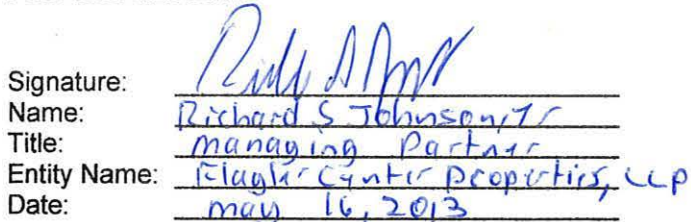 Signature:
Name: Richard S Johnson, Jr
Title: Managing Partner
Entity Name: Flagler Center Properties, LLP
Date: May 16, 2013